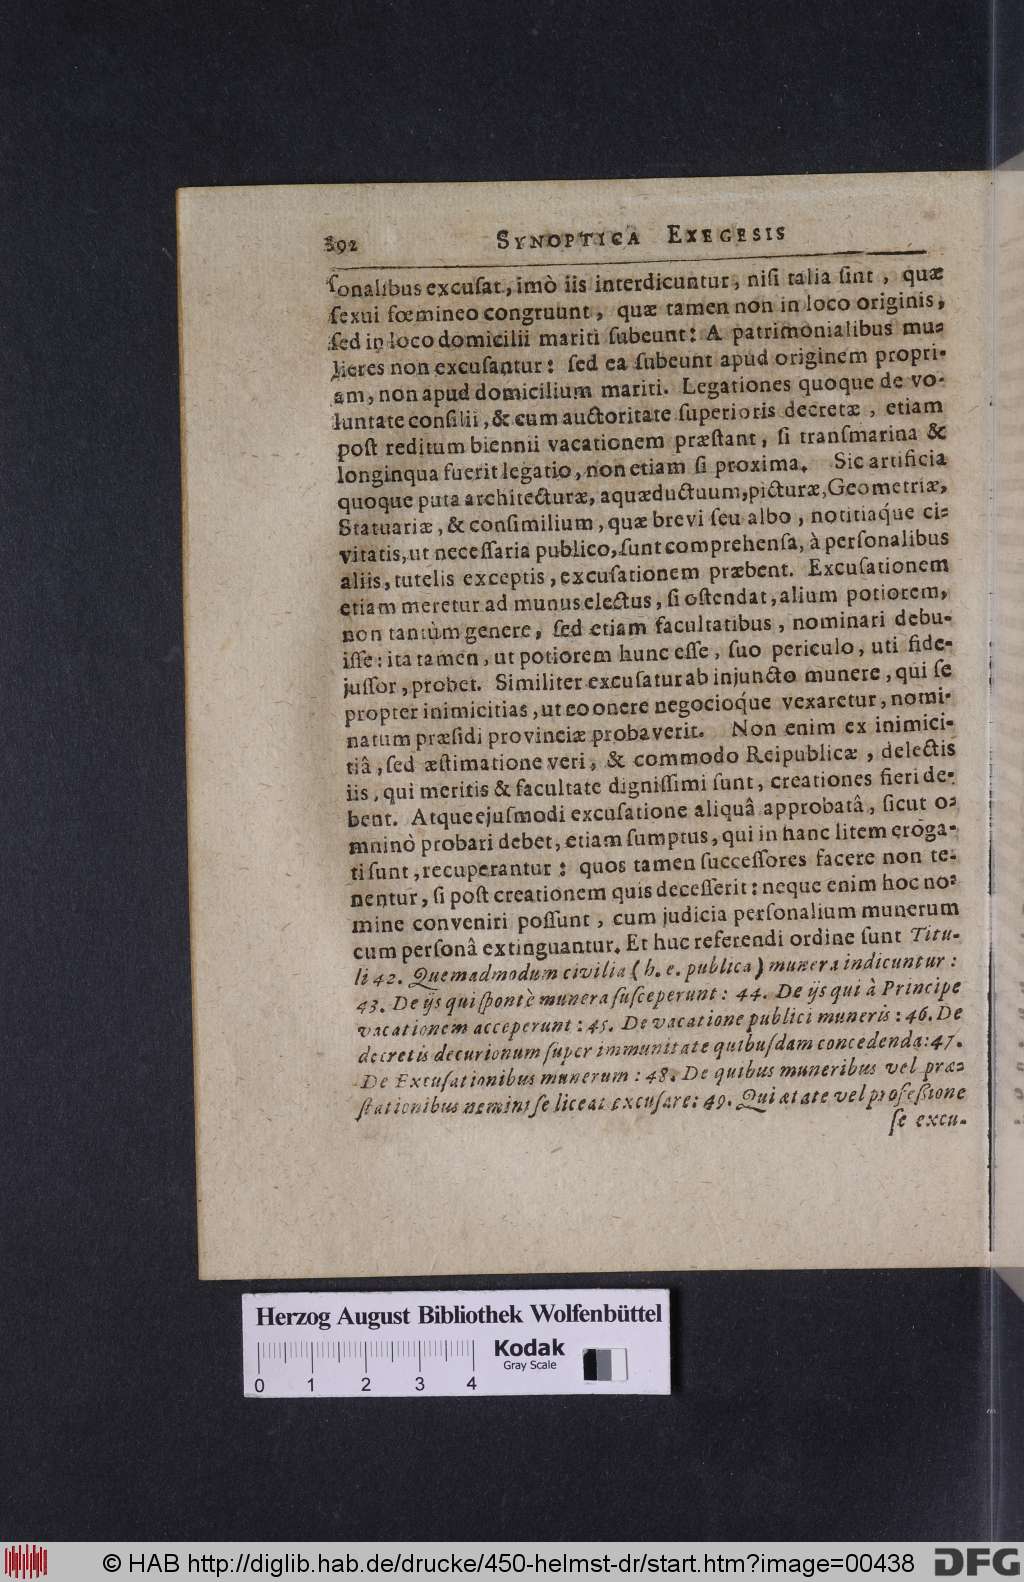 392 SYNOPTICA EXEGESIS
ſonalibus excuſat, imò iis interdicuntur, niſi talia ſint, quæ
ſexui fœmineo congruunt, quæ tamen non in loco originis,
ſed in loco domicilii mariti ſubeunt: A patrimonialibus mu-
lieres non excuſantur: ſed ea ſubeunt apud originem propri-
am, non apud domicilium mariti. Legationes quoque de vo-
luntate conſilii, & cum auctoritate ſuperioris decretæ, etiam
poſt reditum biennii vacationem præſtant, ſi tranſmarina &
longinqua fuerit legatio, non etiam ſi proxima. Sic artificia
quoque puta architecturæ, aquæductuum, picturæ, Geometriæ,
Statuariæ, & conſimilium, quæ brevi ſeu albo, notitiaq́ue ci-
vitatis, ut neceſſaria publico, ſunt comprehenſa, à perſonalibus
aliis, tutelis exceptis, excuſationem præbent. Excuſationem
etiam meretur ad munus electus, ſi oſtendat, alium potiorem,
non tantùm genere, ſed etiam facultatibus, nominari debu-
iſſe: ita tamen, ut potiorem hunc eſſe, ſuo periculo, uti fide-
juſſor, probet. Similiter excuſatur ab injuncto munere, qui ſe
propter inimicitias, ut eo onere negocioq́ue vexaretur, nomi-
natum præſidi provinciæ probaverit. Non enim ex inimici-
tiâ, ſed æſtimatione veri, & commodo Reipublicæ, delectis
iis, qui meritis & facultate digniſſimi ſunt, creationes fieri de-
bent. Atque ejuſmodi excuſatione aliquâ approbatâ, ſicut o-
mninò probari debet, etiam ſumptus, qui in hanc litem eroga-
ti ſunt, recuperantur: quos tamen ſucceſſores facere non te-
nentur, ſi poſt creationem quis deceſſerit: neque enim hoc no-
mine conveniri poſſunt, cum judicia perſonalium munerum
cum perſonâ extinguantur. Et huc referendi ordine ſunt Titu-
li 42. Quemadmodum civilia (h. e. publica) munera indicuntur:
43. De ijs qui ſpontè munera ſuſceperunt: 44. De ijs qui à Principe
vacationem acceperunt: 45. De vacatione publici muneris: 46. De
decretis decurionum ſuper immunitate quibuſdam concedenda: 47.
De Excuſationibus munerum: 48. De quibus muneribus vel præ-
ſtationibus nemini ſe liceat excuſare: 49. Qui ætate vel profeßione
ſe excu-
Herzog August Bibliothek Wolfenbüttel
Kodak
Gray Scale
0 1 2 3 4
© HAB http://diglib.hab.de/drucke/450-helmst-dr/start.htm?image=00438 DFG